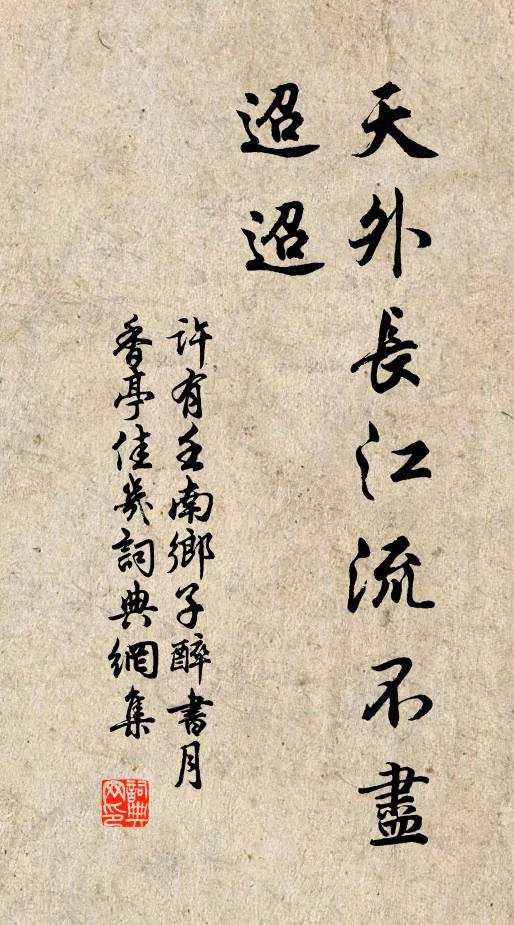 天外長江流不盡
迢迢
許有壬南鄉子醉書月
香亭佳幾詞典網集
詞典網印